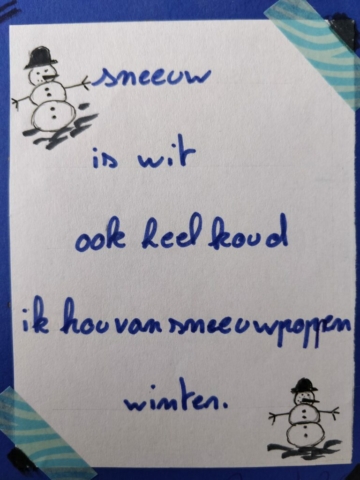 sneeuw
is wit
ook heel koud
ik hou van sneeuwpoppen
winter.